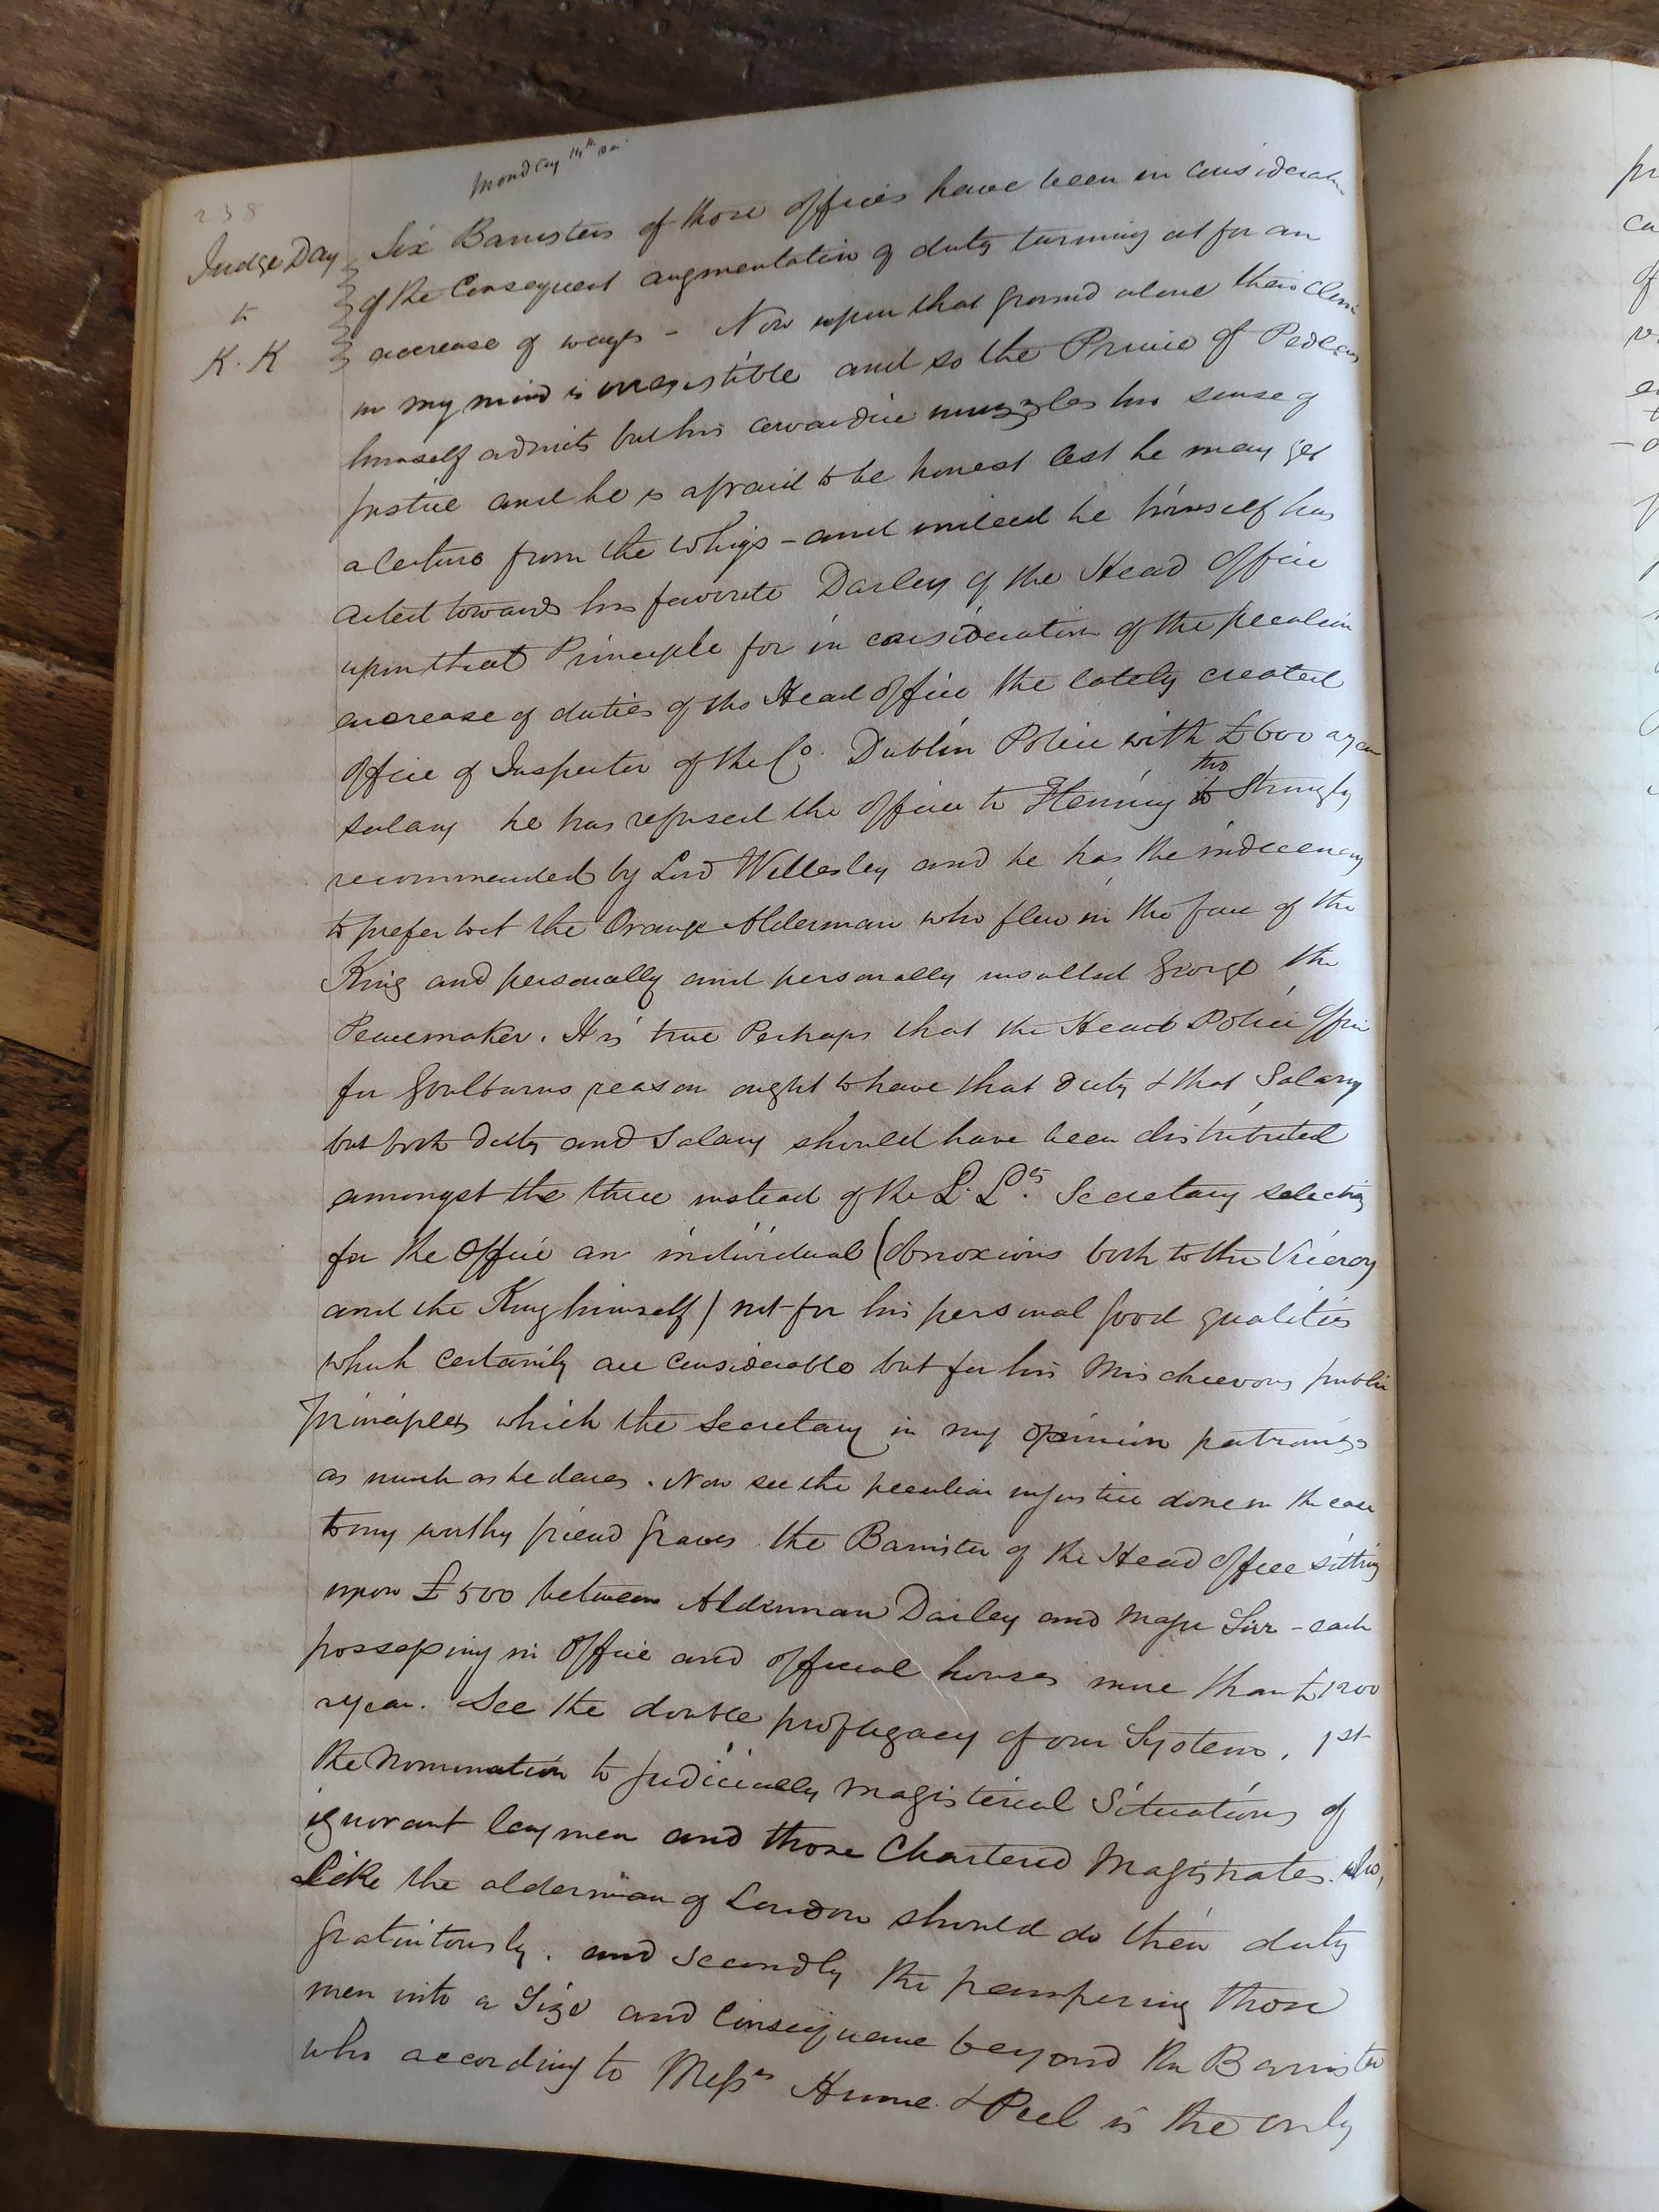 Monday 14th Do
238
Judge Day
to
K. K
Six Barristers of those offices have been in consideration
of the Consequent augmentation of duty turning out for an
accrease of wages - Now upon that ground alone their claim
in my mind is irresistible and so the Prince of Pedlers
himself admits but his cowardice muzzles his sense of
justice and he is afraid to be honest lest he may get
a lecture from the Whigs - and indeed he himself has
acted towards his favorite Darley of the Head Office
upon that Principle for in consideration of the peculiar
encrease of duties of the Head Office the lately created
Office of Inspector of the Co. Dublin Police with £600 a year
salary he has refused the office to Fleming tho strongly
recommended by Lord Wellesley and he has the indecency
to prefer to it the Orange Alderman who flew in the face of the
King and personally and personally insulted George the
Peacemaker. It is true Perhaps that the Head Police Office
for Goulburns reason ought to have that duty & that Salary
but both duty and Salary should have been distributed
amongst the three instead of the L. Lds. Secretary selecting
for the Office an individual (obnoxious both to the Viceroy
and the King himself) not for his personal good qualities
which certainly are considerable but for his Mischievous public
Principles which the Secretary in my opinion patronizes
as much as he dares. Now see the peculiar injustice done in the case
to my worthy friend Graves the Barrister of the Head Office sitting
upon £500 between Alderman Darley and Major Sirr - each
possessing in Office and official houses more than £1200
a year. See the double profligacy of our System, 1st
the nomination to judicially magisterial Situations of
ignorant laymen and those Chartered Magistrates who,
Like the alderman of London should do their duty
gratuitously. and secondly the pampering those
men into a Size and Consequence beyond the Barrister
who according to Messrs Hume & Peel is the only